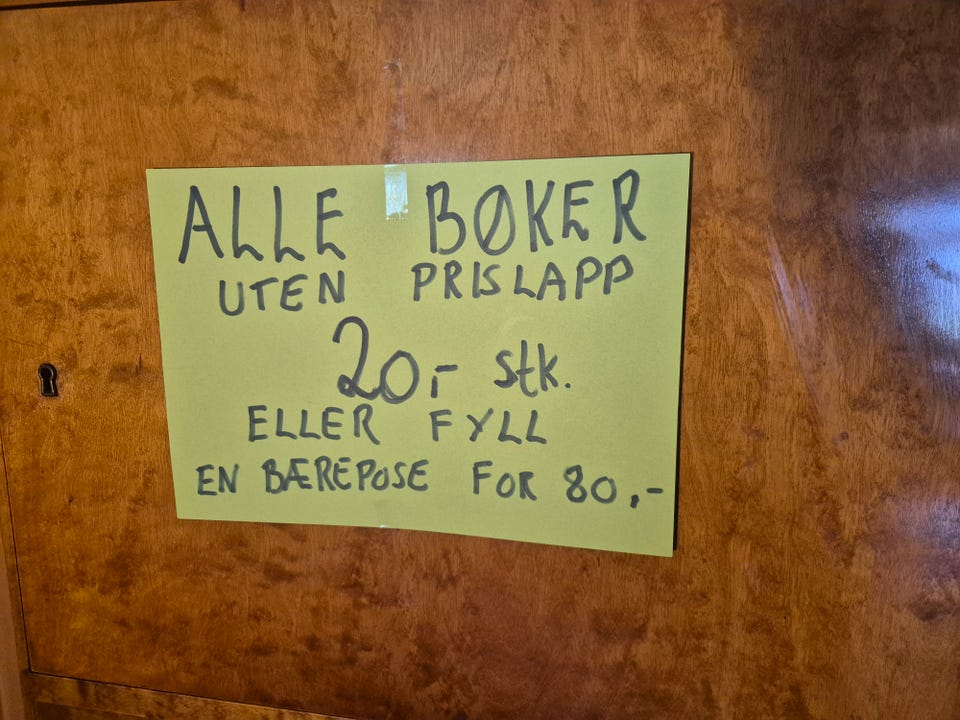 ALLE BØKER
UTEN PRISLAPP
20,- stk.
ELLER FYLL
EN BÆREPOSE FOR 80,-